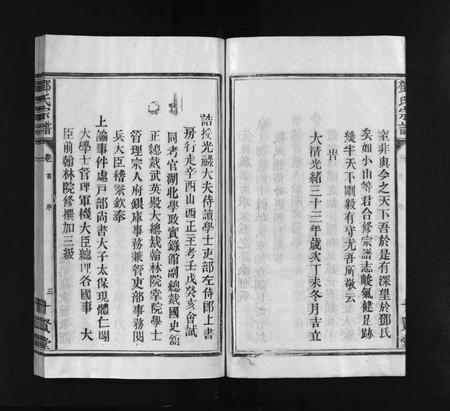 鄧氏宗譜
室非與今之天下吾於是有深望於鄧氏
矣如小山等君合修宗譜志峻氣健足跡
幾半天下剛毅有守尤吾所敬云
旹
大清光緒三十三年歲次丁未冬月吉立
誥授光祿大夫侍讀學士吏部左侍郎上書
房行走辛酉山西正主考壬戌癸亥會試
同考官湖北學政實錄館副總裁國史館
正總裁武英殿大總裁翰林院掌院學士
管理宗人府銀庫事務兼管吏部事務閱
兵大臣稽察欽奉
上諭事件處戶部尚書大子太保現體仁閣
大學士管理軍機大臣總理各國事 大
臣前翰林院修撰加三級
鄧氏宗譜
卷首 序
三
十賢堂